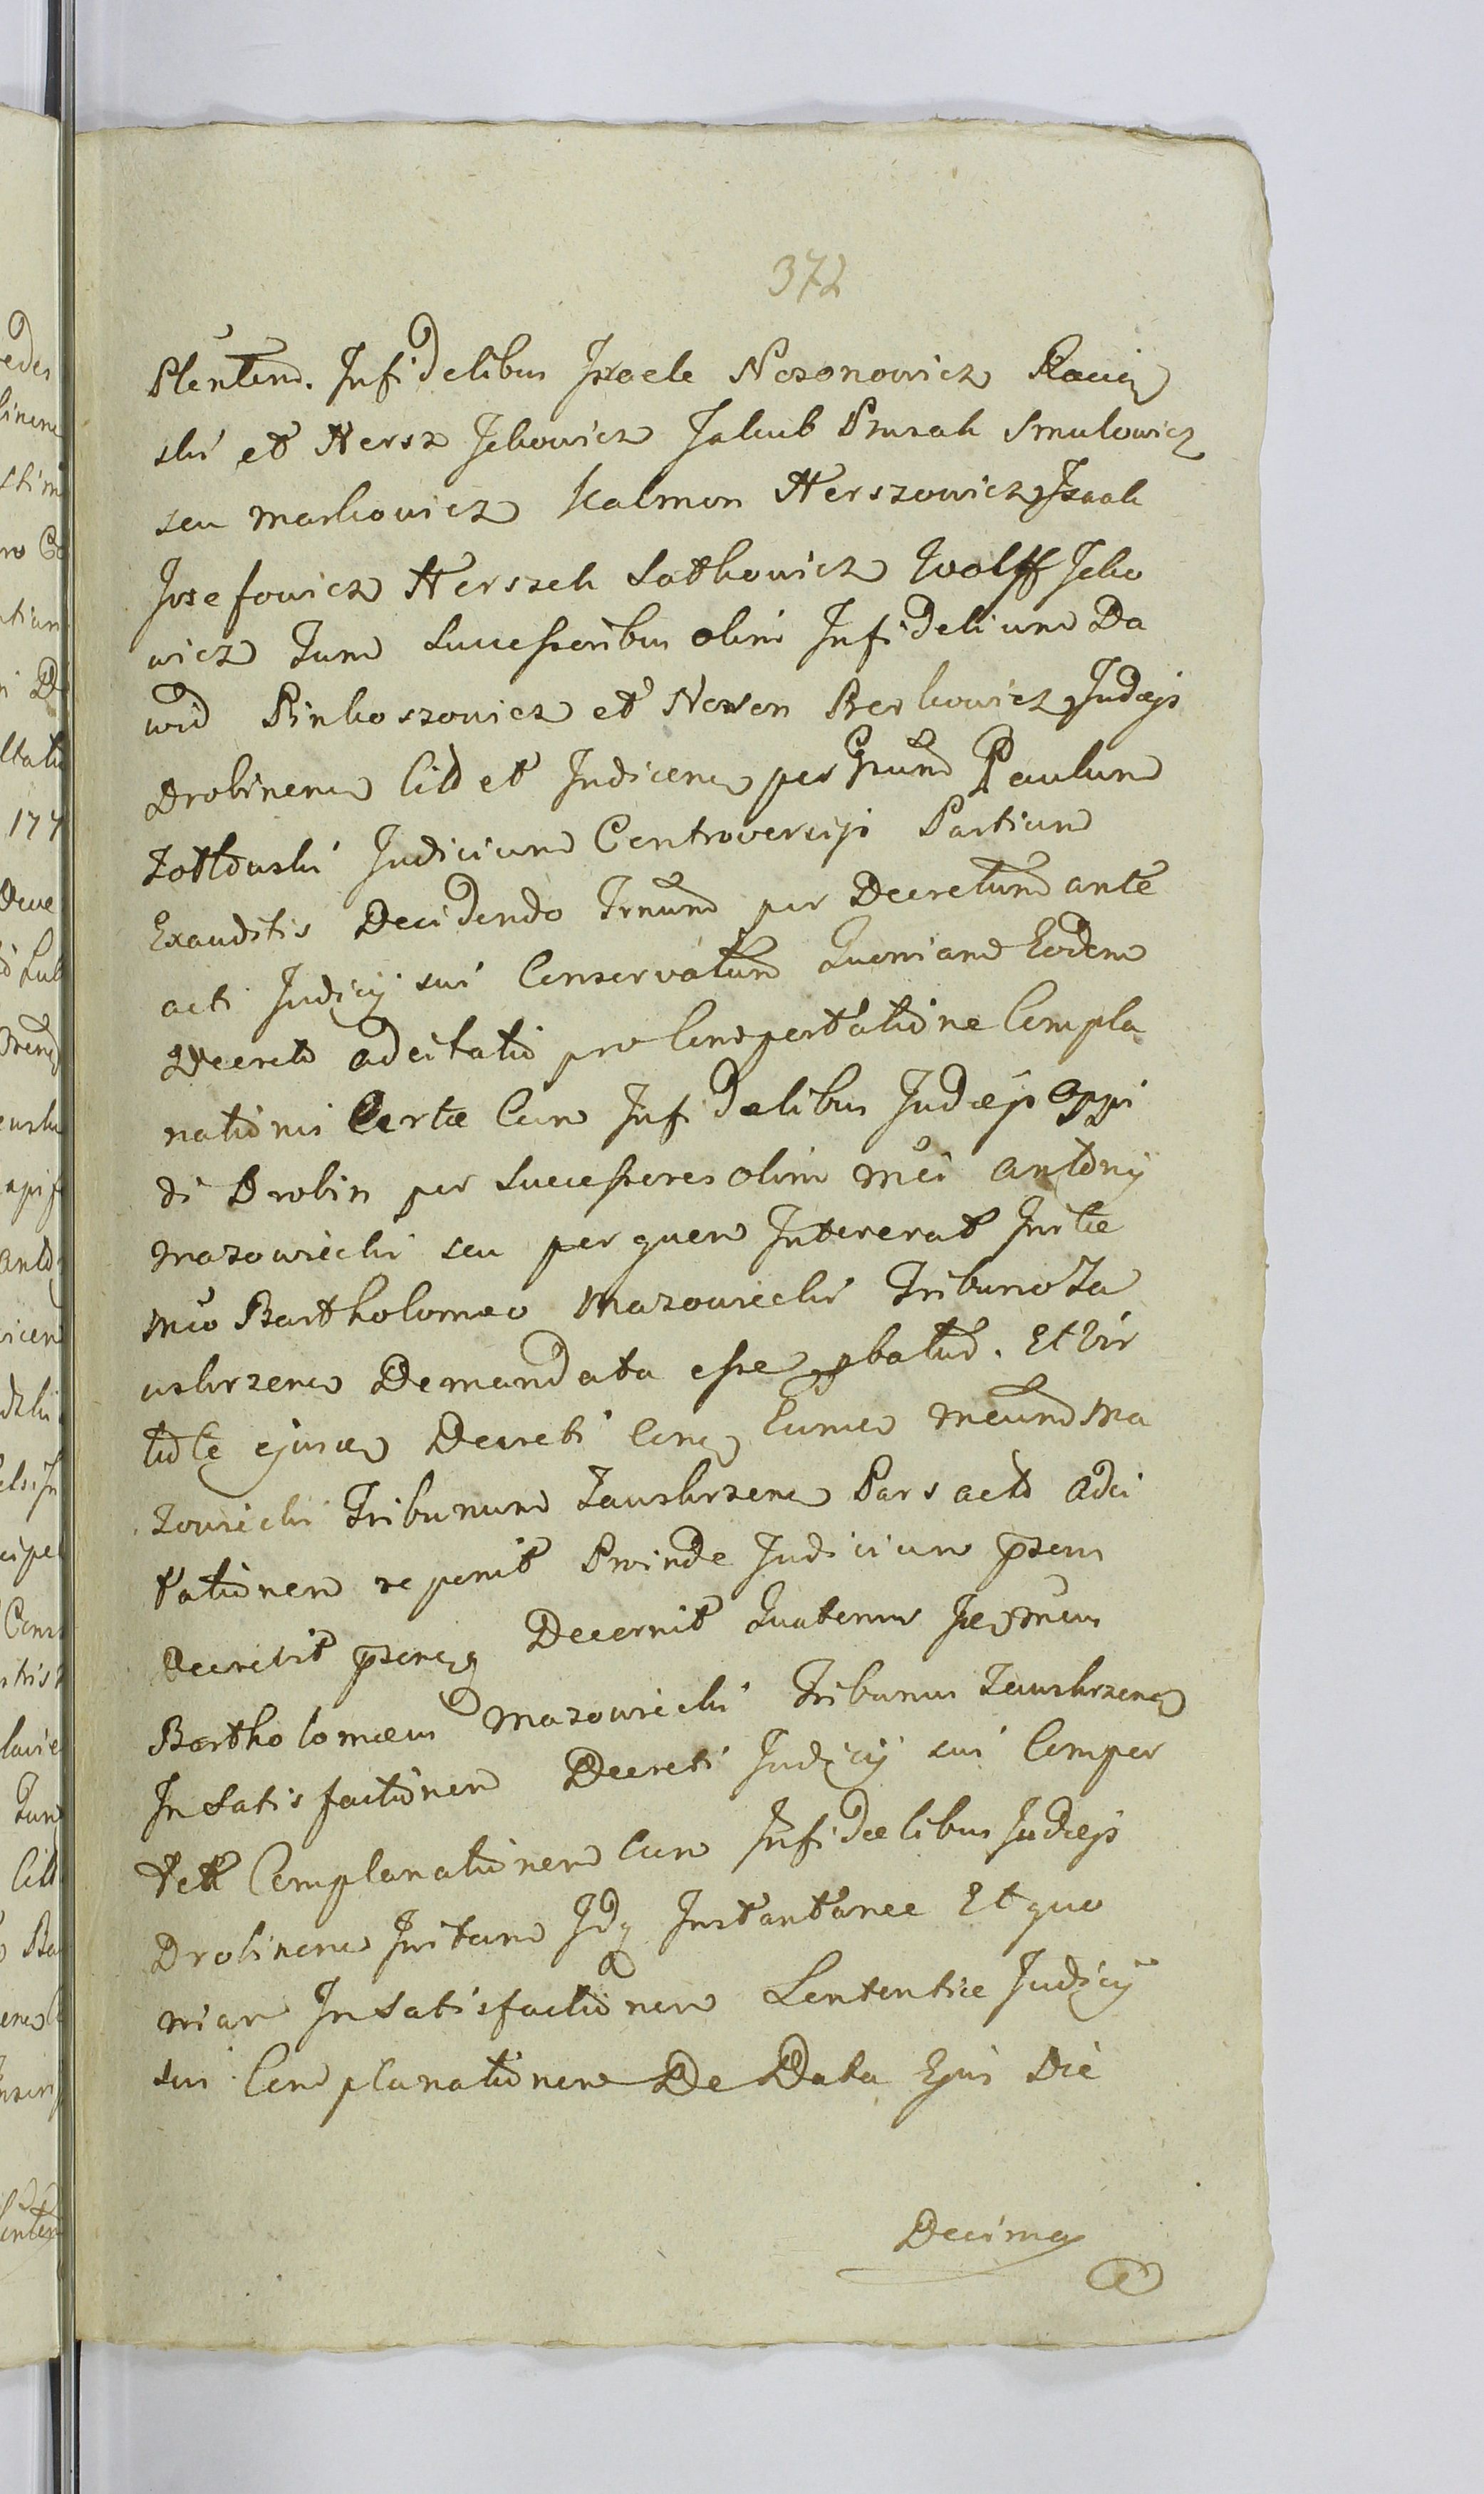 372
Plenten. Infidelibus Izraele Nosonowicz Raciąz
ski et Hersz Jckowicz Jakub Prusak Smulowicz
seu Markowicz Kalmon Herszowicz Izaak
Josefowicz Herszek Satkowicz Wolff Jcko
wicz Tum Successoribus olim Infidelium Da
wid Pinkoszowicz et Noson Berkowicz Judæis
Drobinen Citt et Judicen per Paulum
Judicium Controversijs Partium
Exauditis Decidendo Trnum per Decretum ante
acti Judicij sui Conservatum Quoniam Eodem
Decreto adcitatio pro Comportatione Compla
nationis Certæ Cum Infidelibus Judæis Oppi
di Drobin per Successores olim Mci Antonij
Mazowiecki seu per quem Intererat Initæ
Mco Bartholomæo Mazowiecki Tribuno Za
uskrzen Demandata esse pbatur. Et Vir
tute ejusm Decreti Cum Mcum Ma
zowiecki Tribunum Zauskrzen Pars acto adci
tationem reponit Proinde Judicium psens
Decrevit psenq Decernit Quatenus Idem Mcus
Bartholomæus Mazowiecki Tribunus Zauskrzen
In Satisfactionem Decreti Judicij sui Compor
tet Complanationem Cum Infidelibus Judæis
Drobinen Initam Idq Instantanee Et quo
niam In Satisfactionem Sententiæ Judicij
sui Complanationem De Data Ejus Die
Decima